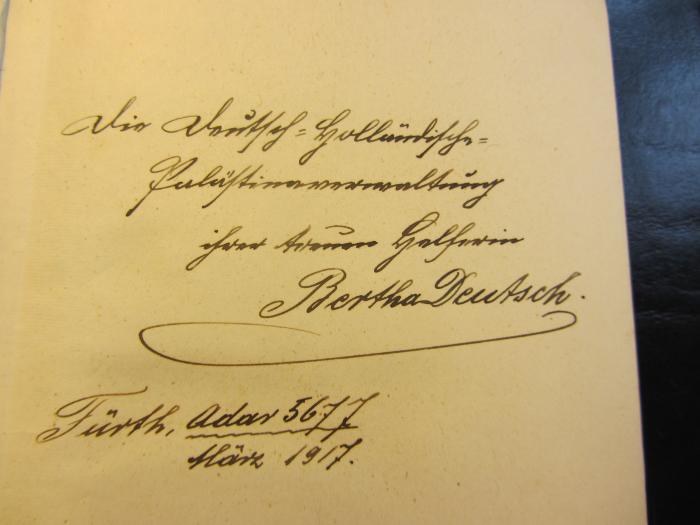 Die Deutsch-Holländische-
Palästinaverwaltung
ihrer treuen Helferin
Bertha Deutsch.
Fürth, Adar 5677
März 1917.